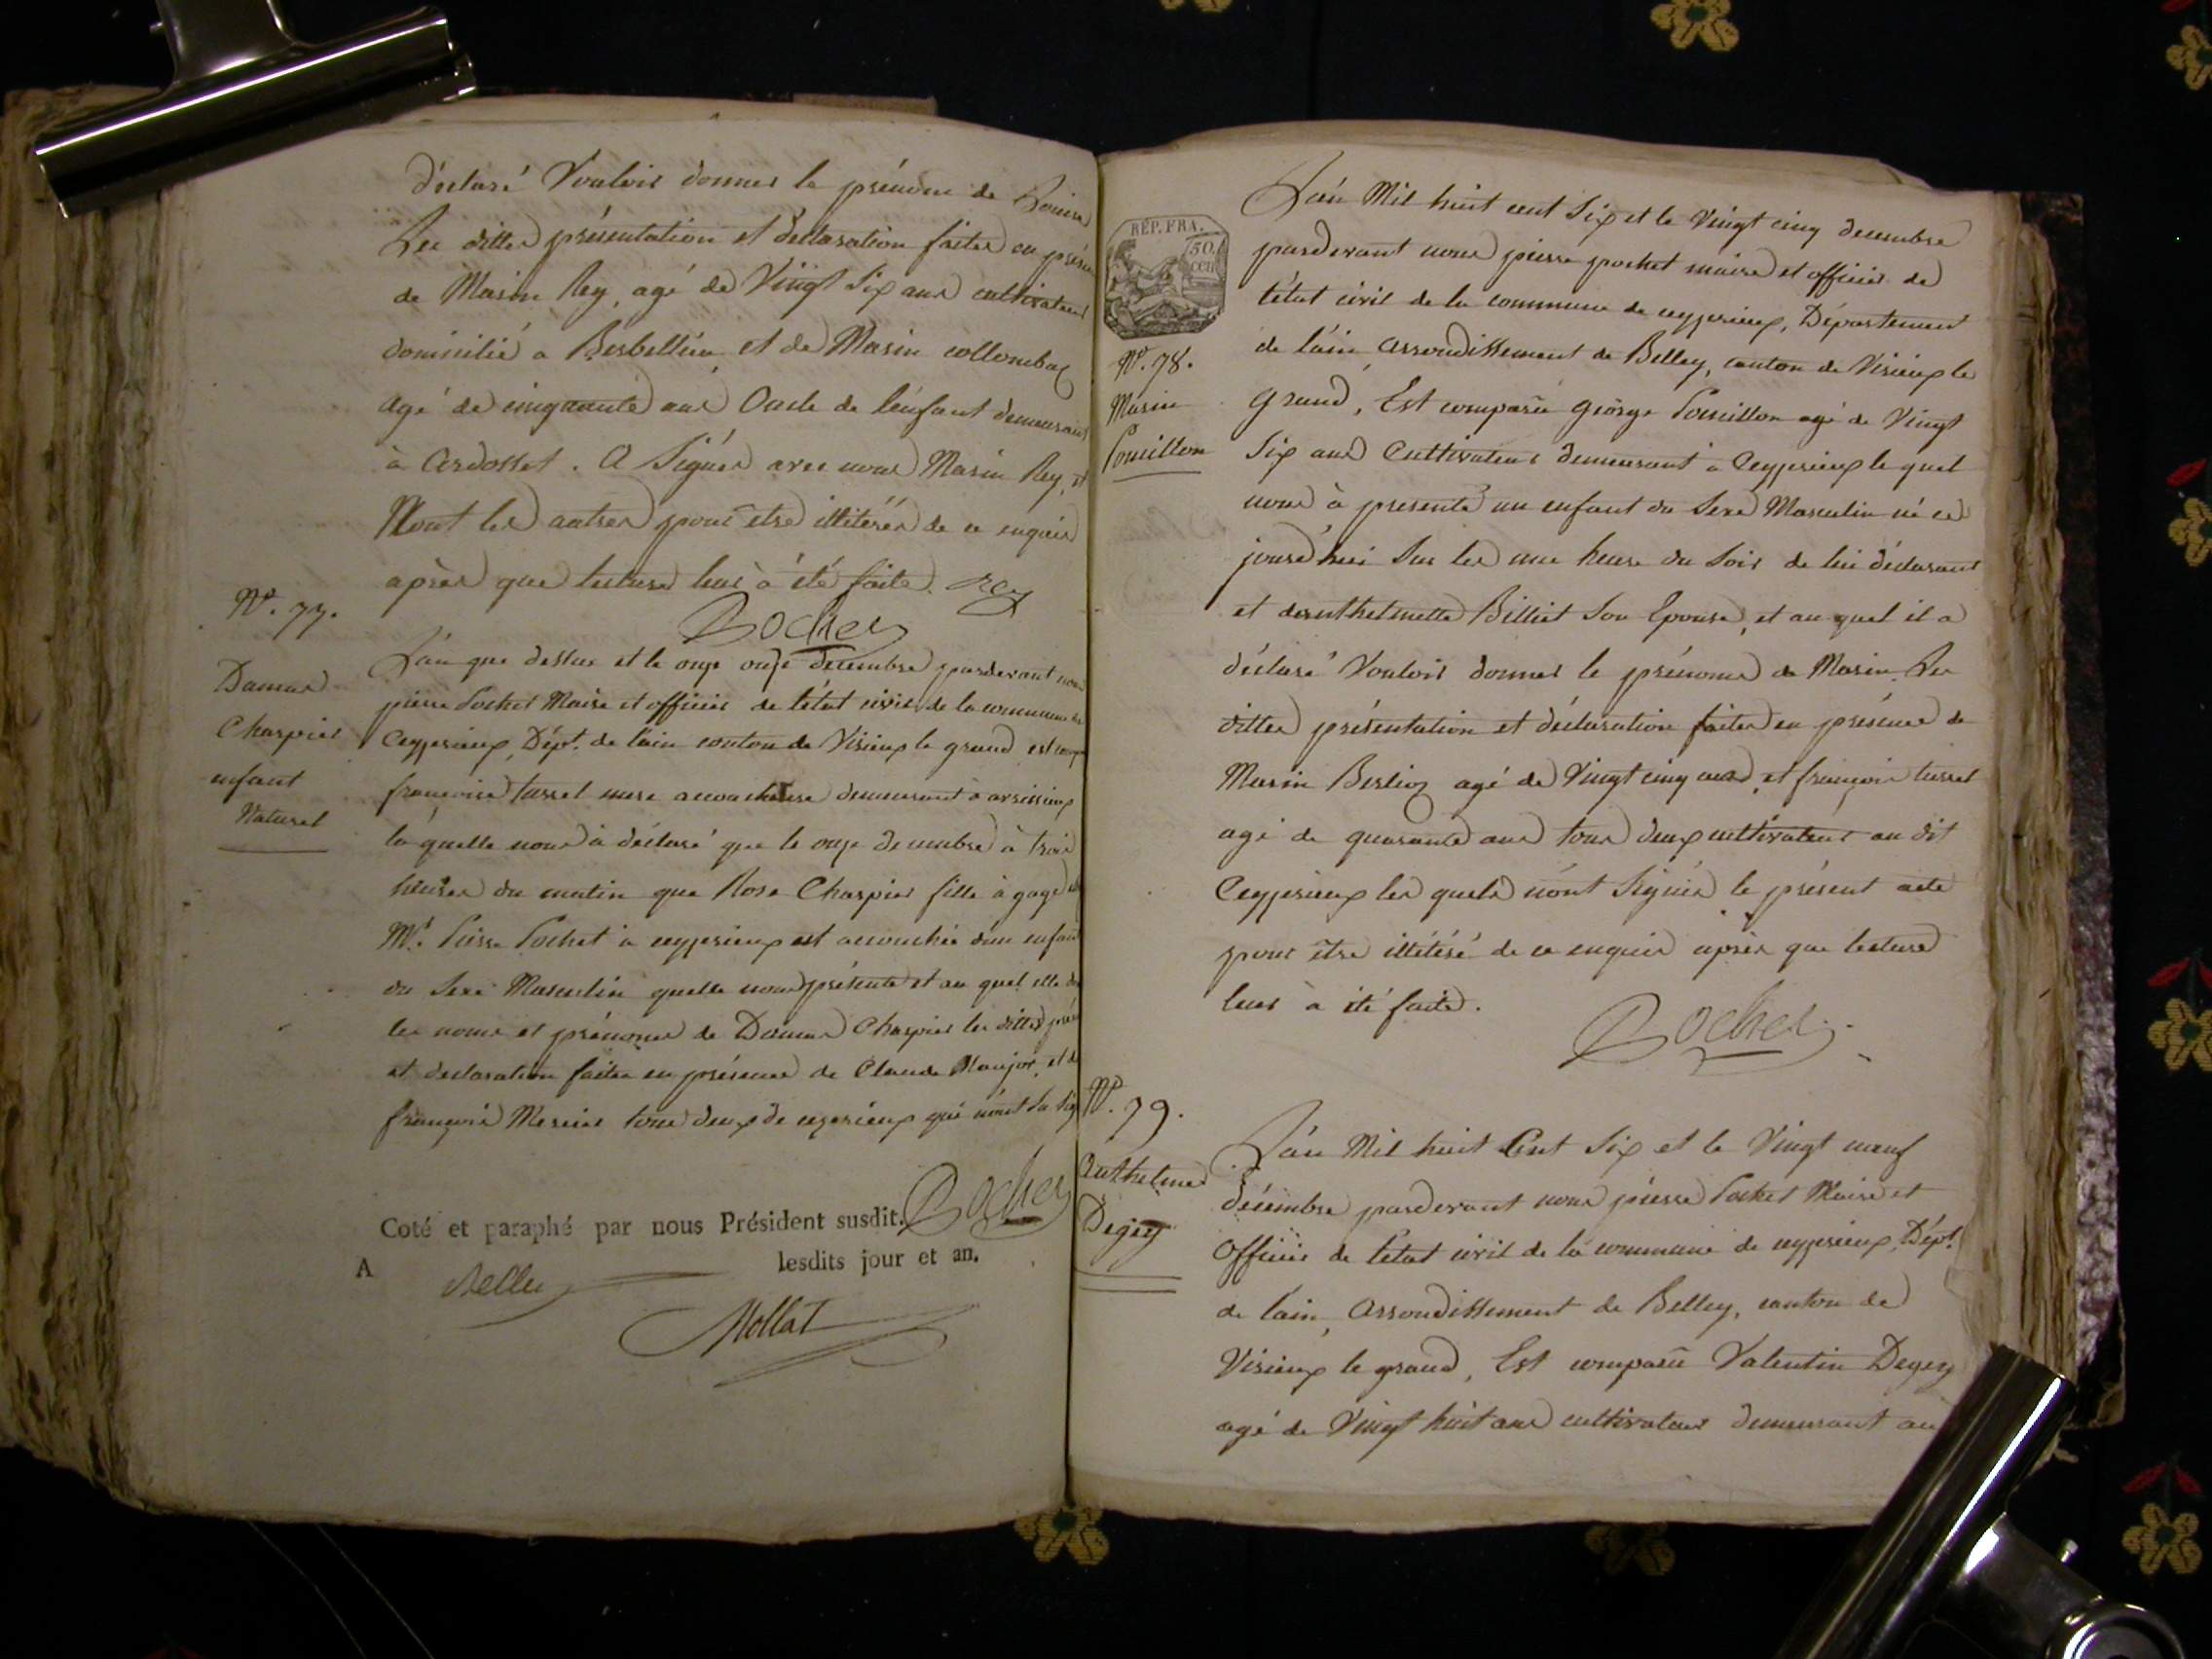 déclaré Vouloir donner le prénom de Louise
Les dittes présentation et déclaration faites en présence
de Marin Rey, agé de Vingt Six ans cultivateur
domicilié a Berbellieu et de Marin collombax
agé de cinquante ans Oncle de l'enfant demeurant
à Ardosset. A Signés avec nous Marin Rey, et
Nont les autres pour être illitérés de ce enquis
après que lecture leur à été faite. Rey
Pochet
Nº. 77.
Damas
Charpier
enfant
Naturel
L'an que dessus et le onze onze decembre pardevant nous
pierre Pochet Maire et officier de l'état civil de la commune de
Ceyzerieux, Dépt. de l'ain canton de Virieux le grand est comp
francoise tasset mere accoucheuse demeurant à avrissieux
la quelle nous à déclaré que le onze decembre à trois
heures du matin que Rose Charpier fille à gage
Mr. Pierre Pochet à ceyzerieux est accouchée d'un enfant
du Sexe Masculin quelle nous présente et au quel elle
les noms et prénoms de Damas Charpier les dittes
et declaration faites en présence de Claude et de
françois Mercier tous deux de ceyzerieux qui n'ont su sig
Pochet
Coté et paraphé par nous Président susdit.
A Belley lesdits jour et an.
Mollat
RÉP. FRA.
50
cen
Nº. 78.
Marin
Pouillon
L'an Mil huit cent Six et le Vingt cinq decembre
pardevant nous pierre pochet maire et officier de
l'état civil de la commune de ceyzerieux, Département
de l'ain Arrondissement de Belley, canton de Virieux le
grand, Est comparu George Pouillon agé de Vingt
Six ans Cultivateur demeurant a Ceyzerieux le quel
nous à presenté un enfant du Sexe Masculin né ce
jourd'hui Sur les une heure du Soir de lui déclarant
et d'anthelmette Billiet Son Epouse, et au quel il a
déclaré Vouloir donner le prénoms de Marin. Les
dittes présentation et déclaration faites en présence de
Marin Berlioz agé de Vingt cinq ans, et françois tasset
agé de quarante ans tous deux cultivateurs au dit
Ceyzerieux les quels n'ont Signés le présent acte
pour être illitéré de ce enquis après que lecture
leur à été faite.
Pochet
Nº. 79.
Anthelme
Degey
L'an Mil huit Cent Six et le Vingt neuf
décembre pardevant nous pierre Pochet Maire et
Officier de l'état civil de la commune de ceyzerieux, Dépt.
de l'ain, Arrondissement de Belley, canton de
Virieux le grand, Est comparu Valentin Degey
agé de Vingt huit ans cultivateur demeurant au